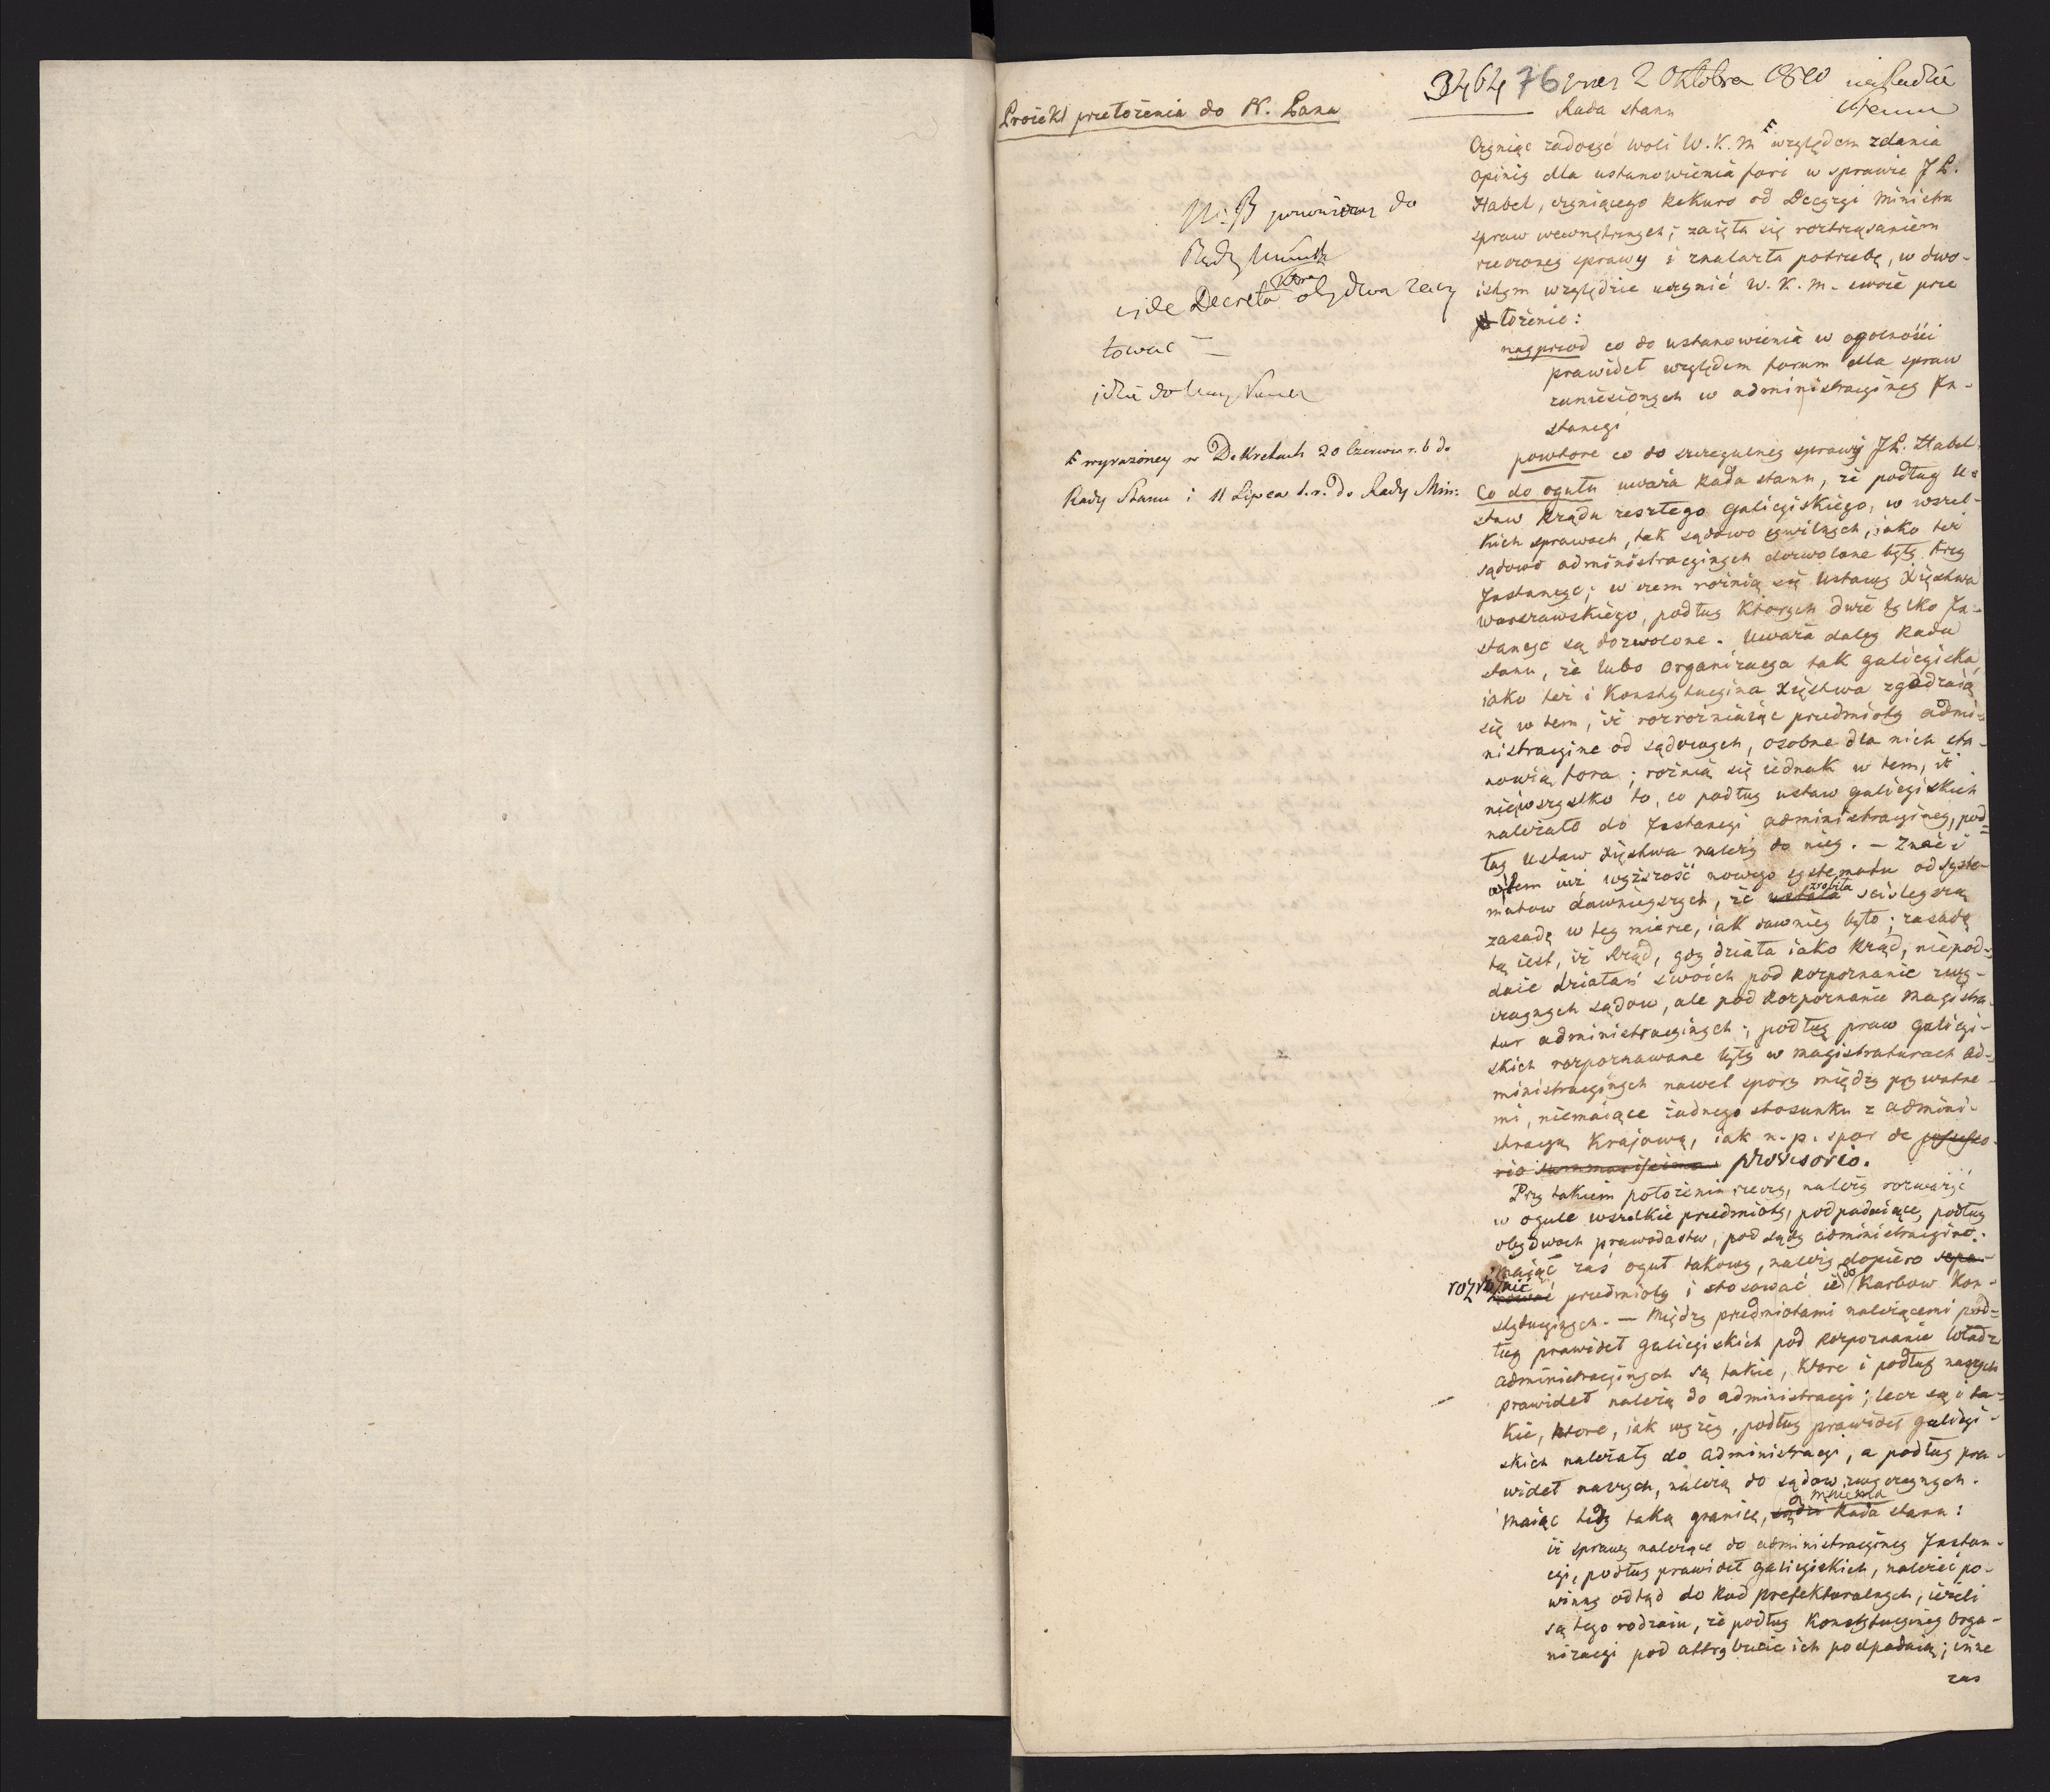 3464 76 2 Oktobra 1810 na Radzie
Stanu
Proiekt przełożenia do N. Pana
Rada stanu
Czyniąc zadosyć woli W. K. M F względem zdania
opinii dla ustanowienia fori w sprawie JP.
Habel, czyniącego Rekurs od Decyzyi Ministra
spraw wewnętrznych; zaięła się roztrząsaniem
rzeczoney sprawy i znalazła potrzebę, w dwo-
istym względzie uczynić W. K. M. swoie prze
łożenie:
nayprzod co do ustanowienia w ogolności
prawideł względem forum dla spraw
zaniesionych w administracyiney In-
stancyi
powtore co do szczegulney sprawy JP. Habel.
Co do ogułu uważa Rada stanu, że podług U-
staw Rządu zeszłego galicyiskiego, w wszel-
kich sprawach, tak sądowo cywilnych, iako też
sądowo administracyinych dozwolone były trzy
Instancye; w czem rożnią się Ustawy Xięstwa
Warszawskiego, podług ktorych dwie tylko In-
stancye są dozwolone. Uważa daley Rada
stanu, że lubo organizacya tak galicyiska,
iako też i Konstytucyina Xięstwa zgadzaią
się w tem, iż rozrożniaiąc przedmioty admi-
nistracyine od sądowych, osobne dla nich sta-
nowią fora; rożnią się iednak w tem, iż
niewszystko to, co podług ustaw galicyiskich
należało do Instancyi administracyiney, pod-
ług Ustaw Xięstwa należy do niey. - Znać i
w tem iuż wyższość nowego systematu od syste-
matow dawnieyszych, że zrobiła ścisleyszą
zasadę w tey mierze, iak dawniey było; zasadą
tą iest, iż Rząd, gdy działa iako Rząd, niepod-
daie działań swoich pod rozpoznanie zwy-
czaynych sądow, ale pod rozpoznanie Magistra-
tur administracyinych; podług praw galicyi-
skich rozpoznawane były w magistraturach ad-
ministracyinych nawet spory między prywatne-
mi, niemaiące żadnego stosunku z admini-
stracyą Kraiową, iak n. p. spor de possesso-
rio summariissimo provisorio.
Przy takiem położeniu rzeczy, należy rozważyć
w ogule wszelkie przedmioty, podpadaiące, podług
obydwoch prawodastw, pod sądy administracyine.
maiąc zaś oguł takowy, należy dopiero sepa-
rować rozrożnić przedmioty i stosować ie do Karbow Kon-
stytucyinych. - Między przedmiotami należącemi pod-
ług prawideł galicyiskich pod rozpoznanie Władz
administracyinych są takie, ktore i podług naszych
prawideł należą do administracyi; lecz są i ta-
kie, ktore, iak wyżey, podług prawideł galicyi-
skich należały do administracyi, a podług pra-
wideł naszych, należą do sądow zwyczaynych.
Maiąc tedy taką granicę, sądzi mniema Rada stanu:
iż sprawy należące do administracyiney Instan-
cyi, podług prawideł galicyiskich, należeć po-
winny odtąd do Rad prefekturalnych, ieżeli
są tego rodzaiu, że podług Konstytucyiney Orga-
nizacyi pod attrybucie ich podpadaią; inne
zas
do
Rady
vide Decreta obydwa
F wyrażoney w Dekretach 20 Czerwca r. b do
Rady Stanu i 11 Lipca t. r. do Rady Min: